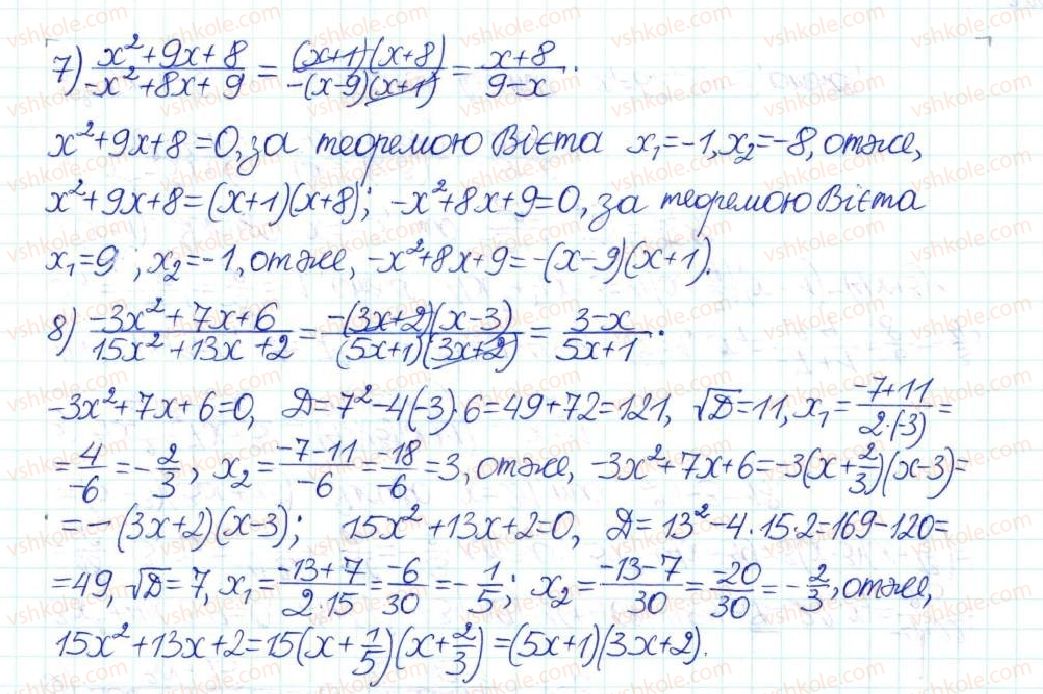 7) (x²+9x+8)/(-x²+8x+9) = ((x+1)(x+8))/(-(x-9)(x+1)) = (x+8)/(9-x).
x²+9x+8=0, за теоремою Вієта x₁=-1, x₂=-8, отже,
x²+9x+8=(x+1)(x+8); -x²+8x+9=0, за теоремою Вієта
x₁=9; x₂=-1, отже, -x²+8x+9=-(x-9)(x+1).
8) (-3x²+7x+6)/(15x²+13x+2) = (-(3x+2)(x-3))/((5x+1)(3x+2)) = (3-x)/(5x+1).
-3x²+7x+6=0, D=7²-4(-3)·6=49+72=121, √D=11, x₁=(-7+11)/(2·(-3))=
=4/-6=-2/3; x₂=(-7-11)/-6=-18/-6=3, отже, -3x²+7x+6=-3(x+2/3)(x-3)=
=-(3x+2)(x-3); 15x²+13x+2=0, D=13²-4·15·2=169-120=
=49, √D=7, x₁=(-13+7)/(2·15)=-6/30=-1/5; x₂=(-13-7)/30=-20/30=-2/3, отже,
15x²+13x+2=15(x+1/5)(x+2/3)=(5x+1)(3x+2).
vshkole.com